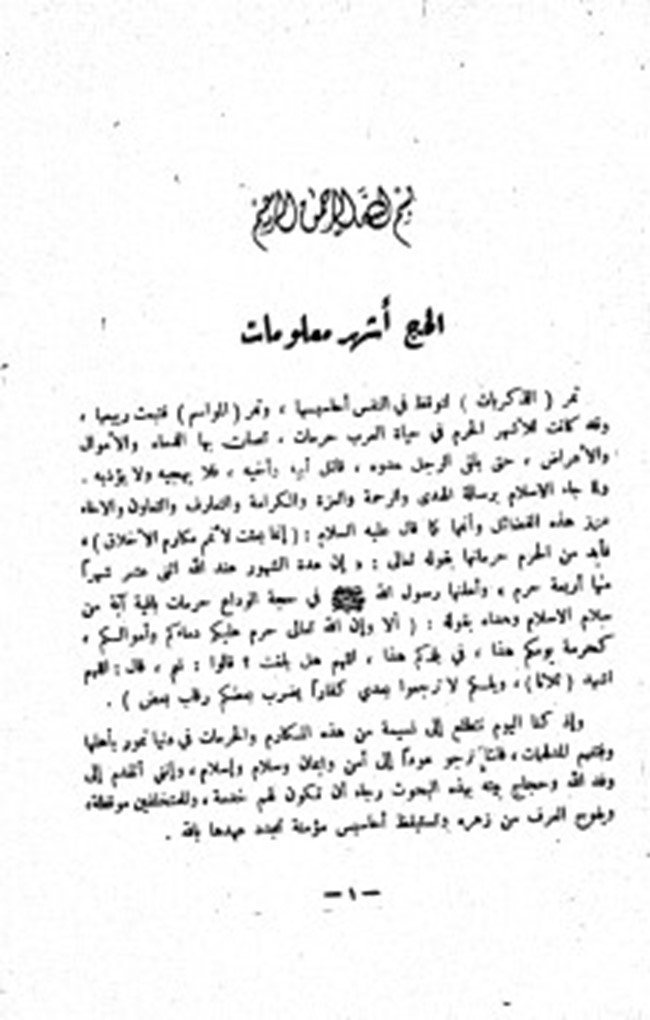 بسم الله الرحمن الرحيم
الحج أشهر معلومات
تمر ( الذكريات ) لتوقظ في النفس أحاسيسها ، وتمر ( المواسم ) فتبعث ربيعها ،
وقد كانت للأشهر الحرم في حياة العرب حرمات ، تصان بها الدماء والأموال
والأعراض ، حتى يلقى الرجل عدوه ، قاتل أبيه وأخيه ، فلا يهيجه ولا يؤذيه .
ولما جاء الاسلام برسالة الهدى والرحمة والعزة والكرامة والتعارف والتعاون والاخاء
عزز هذه الفضائل وأتمها كما قال عليه السلام : ( إنما بعثت لأتمم مكارم الأخلاق ) ،
فأيد من الحرم حرماتها بقوله تعالى : « إن عدة الشهور عند الله اثنى عشر شهراً
منها أربعة حرم » وأعلنها رسول الله ﷺ في حجة الوداع حرمات باقية آية من
سلام الاسلام وهداه بقوله : ( ألا وإن الله تعالى حرم عليكم دماءكم وأموالكم ،
كحرمة يومكم هذا ، في بلدكم هذا ، اللهم هل بلغت ؟ قالوا : نعم ، قال : اللهم
اشهد ( ثلاثا ) ، ويلكم لا ترجعوا بعدي كفاراً يضرب بعضكم رقاب بعض ) .
وإذ كنا اليوم نتطلع إلى نسمة من هذه المكارم والحرمات في دنيا تمور بأهلها
، فاننا نرجو عوداً إلى أمن وايمان وسلام وإسلام ، وإنني أتقدم إلى
وفد الله وحجاج بيته بهذه البحوث رجاء أن تكون لهم خدمة ، وللمتخلفين موعظة ،
ويفوح العرف من زهره وتستيقظ أحاسيس مؤمنة تجدد عهدها بالله .
— ١ —